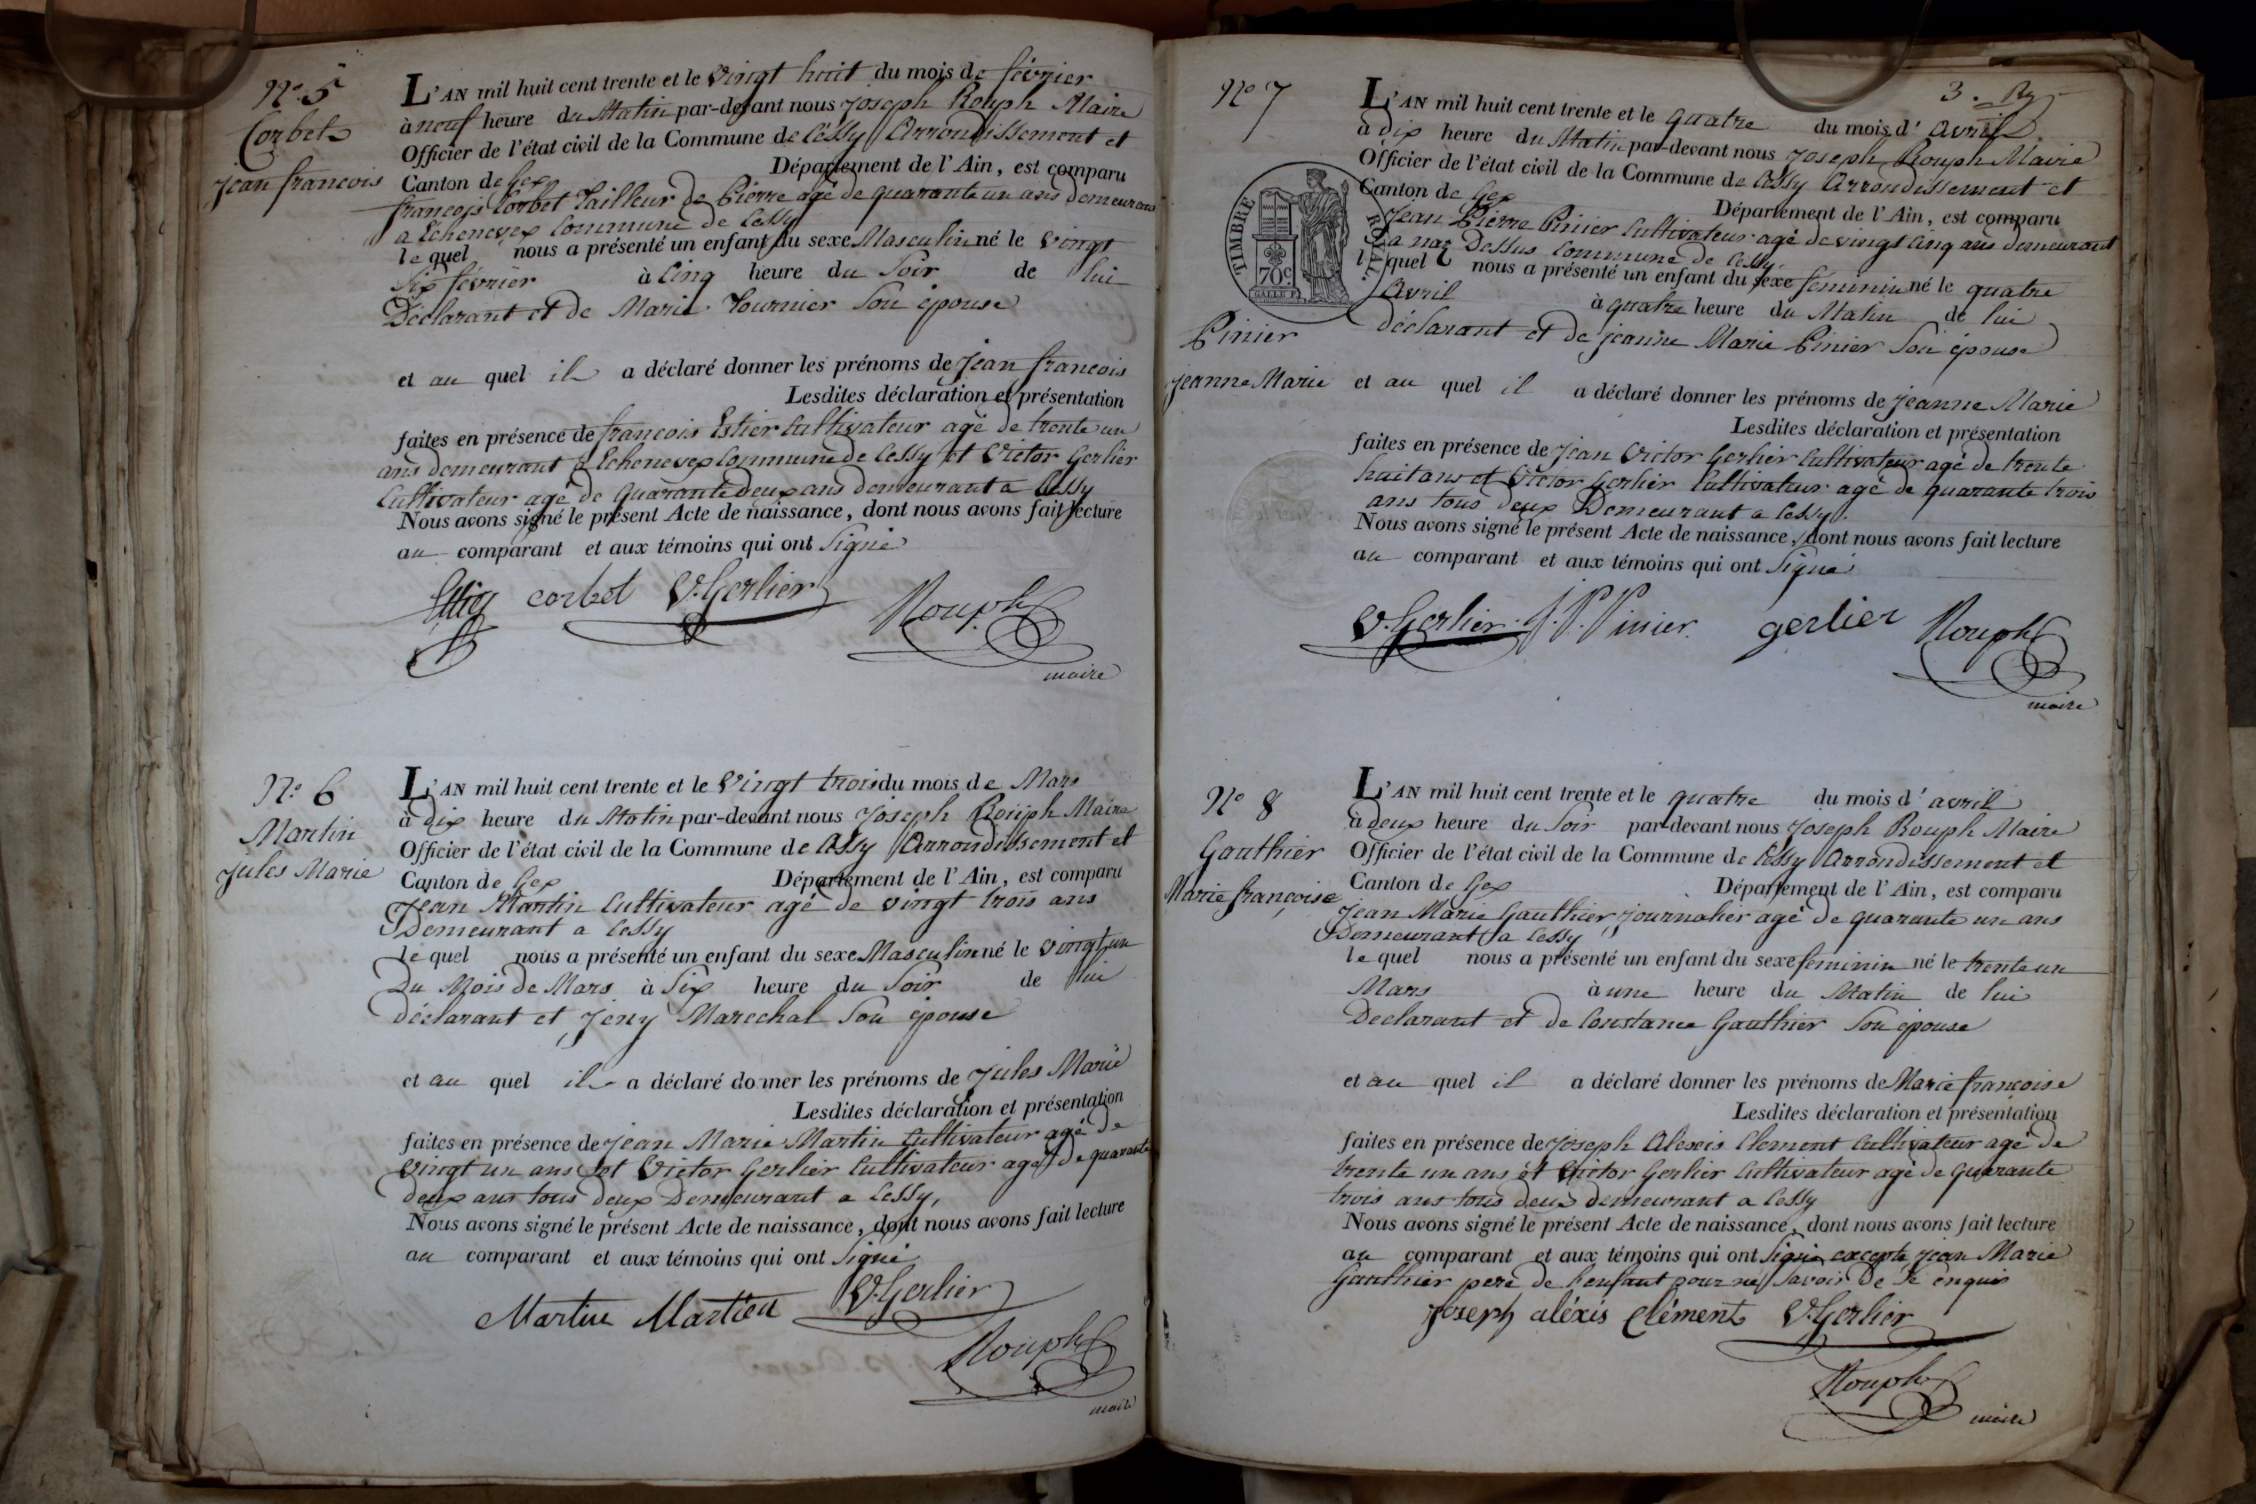 N.° 5
Corbet
Jean francois
L'AN mil huit cent trente et le vingt huit du mois de février
à neuf heure du Matin par-devant nous Joseph Rouph Maire
Officier de l'état civil de la Commune de Cessy Arrondissement et
Canton de Gex Département de l'Ain, est comparu
francois Corbet Tailleur de Pierre agé de quarante un ans demeurant
a Echenevex Commune de Cessy
le quel nous a présenté un enfant du sexe Masculin né le vingt
Six février à Cinq heure du Soir de lui
Déclarant et de Marie Tournier Son épouse
et au quel il a déclaré donner les prénoms de Jean francois
Lesdites déclaration et présentation
faites en présence de francois Estier Cultivateur agé de trente un
ans demeurant a Echenevex Commune de Cessy et Victor Gerlier
Cultivateur agé de Quarante deux ans demeurant a Cessy
Nous avons signé le présent Acte de naissance, dont nous avons fait lecture
au comparant et aux témoins qui ont Signé
corbet V. Gerlier Rouph
maire
N.° 6
Martin
Jules Marie
L'AN mil huit cent trente et le vingt trois du mois de Mars
à dix heure du Matin par-devant nous Joseph Rouph Maire
Officier de l'état civil de la Commune de Cessy Arrondissement et
Canton de Gex Département de l'Ain, est comparu
Jean Martin Cultivateur agé de vingt trois ans
Demeurant a Cessy
le quel nous a présenté un enfant du sexe Masculin né le vingt un
Du Mois de Mars à Six heure du Soir de lui
déclarant et Jeny Marechal Son épouse
et au quel il a déclaré donner les prénoms de Jules Marie
Lesdites déclaration et présentation
faites en présence de Jean Marie Martin Cultivateur agé de
vingt un ans et Victor Gerlier Cultivateur agé de quarante
deux ans tous deux Demeurant a Cessy,
Nous avons signé le présent Acte de naissance, dont nous avons fait lecture
au comparant et aux témoins qui ont Signé
Martin Martin V. Gerlier
Rouph
maire
3.
N° 7
L'AN mil huit cent trente et le quatre du mois d' avril
à dix heure du Matin par-devant nous Joseph Rouph Maire
Officier de l'état civil de la Commune de Cessy Arrondissement et
Canton de Gex Département de l'Ain, est comparu
Jean Pierre Pinier Cultivateur agé de vingt cinq ans demeurant
Dessus Commune de Cessy.
le quel nous a présenté un enfant du sexe feminin né le quatre
Avril à quatre heure du Matin de lui
déclarant et de jeanne Marie Pinier Son épouse
TIMBRE ROYAL.
70c
Pinier
jeanne Marie
et au quel il a déclaré donner les prénoms de Jeanne Marie
Lesdites déclaration et présentation
faites en présence de Jean Victor Gerlier Cultivateur agé de trente
huit ans et Victor Gerlier Cultivateur agé de quarante trois
ans tous deux Demeurant a Cessy.
Nous avons signé le présent Acte de naissance, dont nous avons fait lecture
au comparant et aux témoins qui ont Signé
V. Gerlier. J. P. Pinier. gerlier Rouph
maire
N° 8
Gauthier
Marie françoise
L'AN mil huit cent trente et le quatre du mois d' avril
à deux heure du Soir par-devant nous Joseph Rouph Maire
Officier de l'état civil de la Commune de Cessy Arrondissement et
Canton de Gex Département de l'Ain, est comparu
Jean Marie Gauthier, journalier agé de quarante un ans
Demeurant a Cessy
le quel nous a présenté un enfant du sexe feminin né le trente un
Mars à une heure du Matin de lui
Declarant et de Constance Gauthier Son épouse
et au quel il a déclaré donner les prénoms de Marie françoise
Lesdites déclaration et présentation
faites en présence de Joseph Alexis Clement Cultivateur agé de
trente un ans et Victor Gerlier Cultivateur agé de Quarante
trois ans tous deux demeurant a Cessy
Nous avons signé le présent Acte de naissance, dont nous avons fait lecture
au comparant et aux témoins qui ont Signé excepte Jean Marie
Gauthier pere de l'enfant pour ne Savoir De Ce enquis
Joseph aléxis Clément V. Gerlier
Rouph
maire